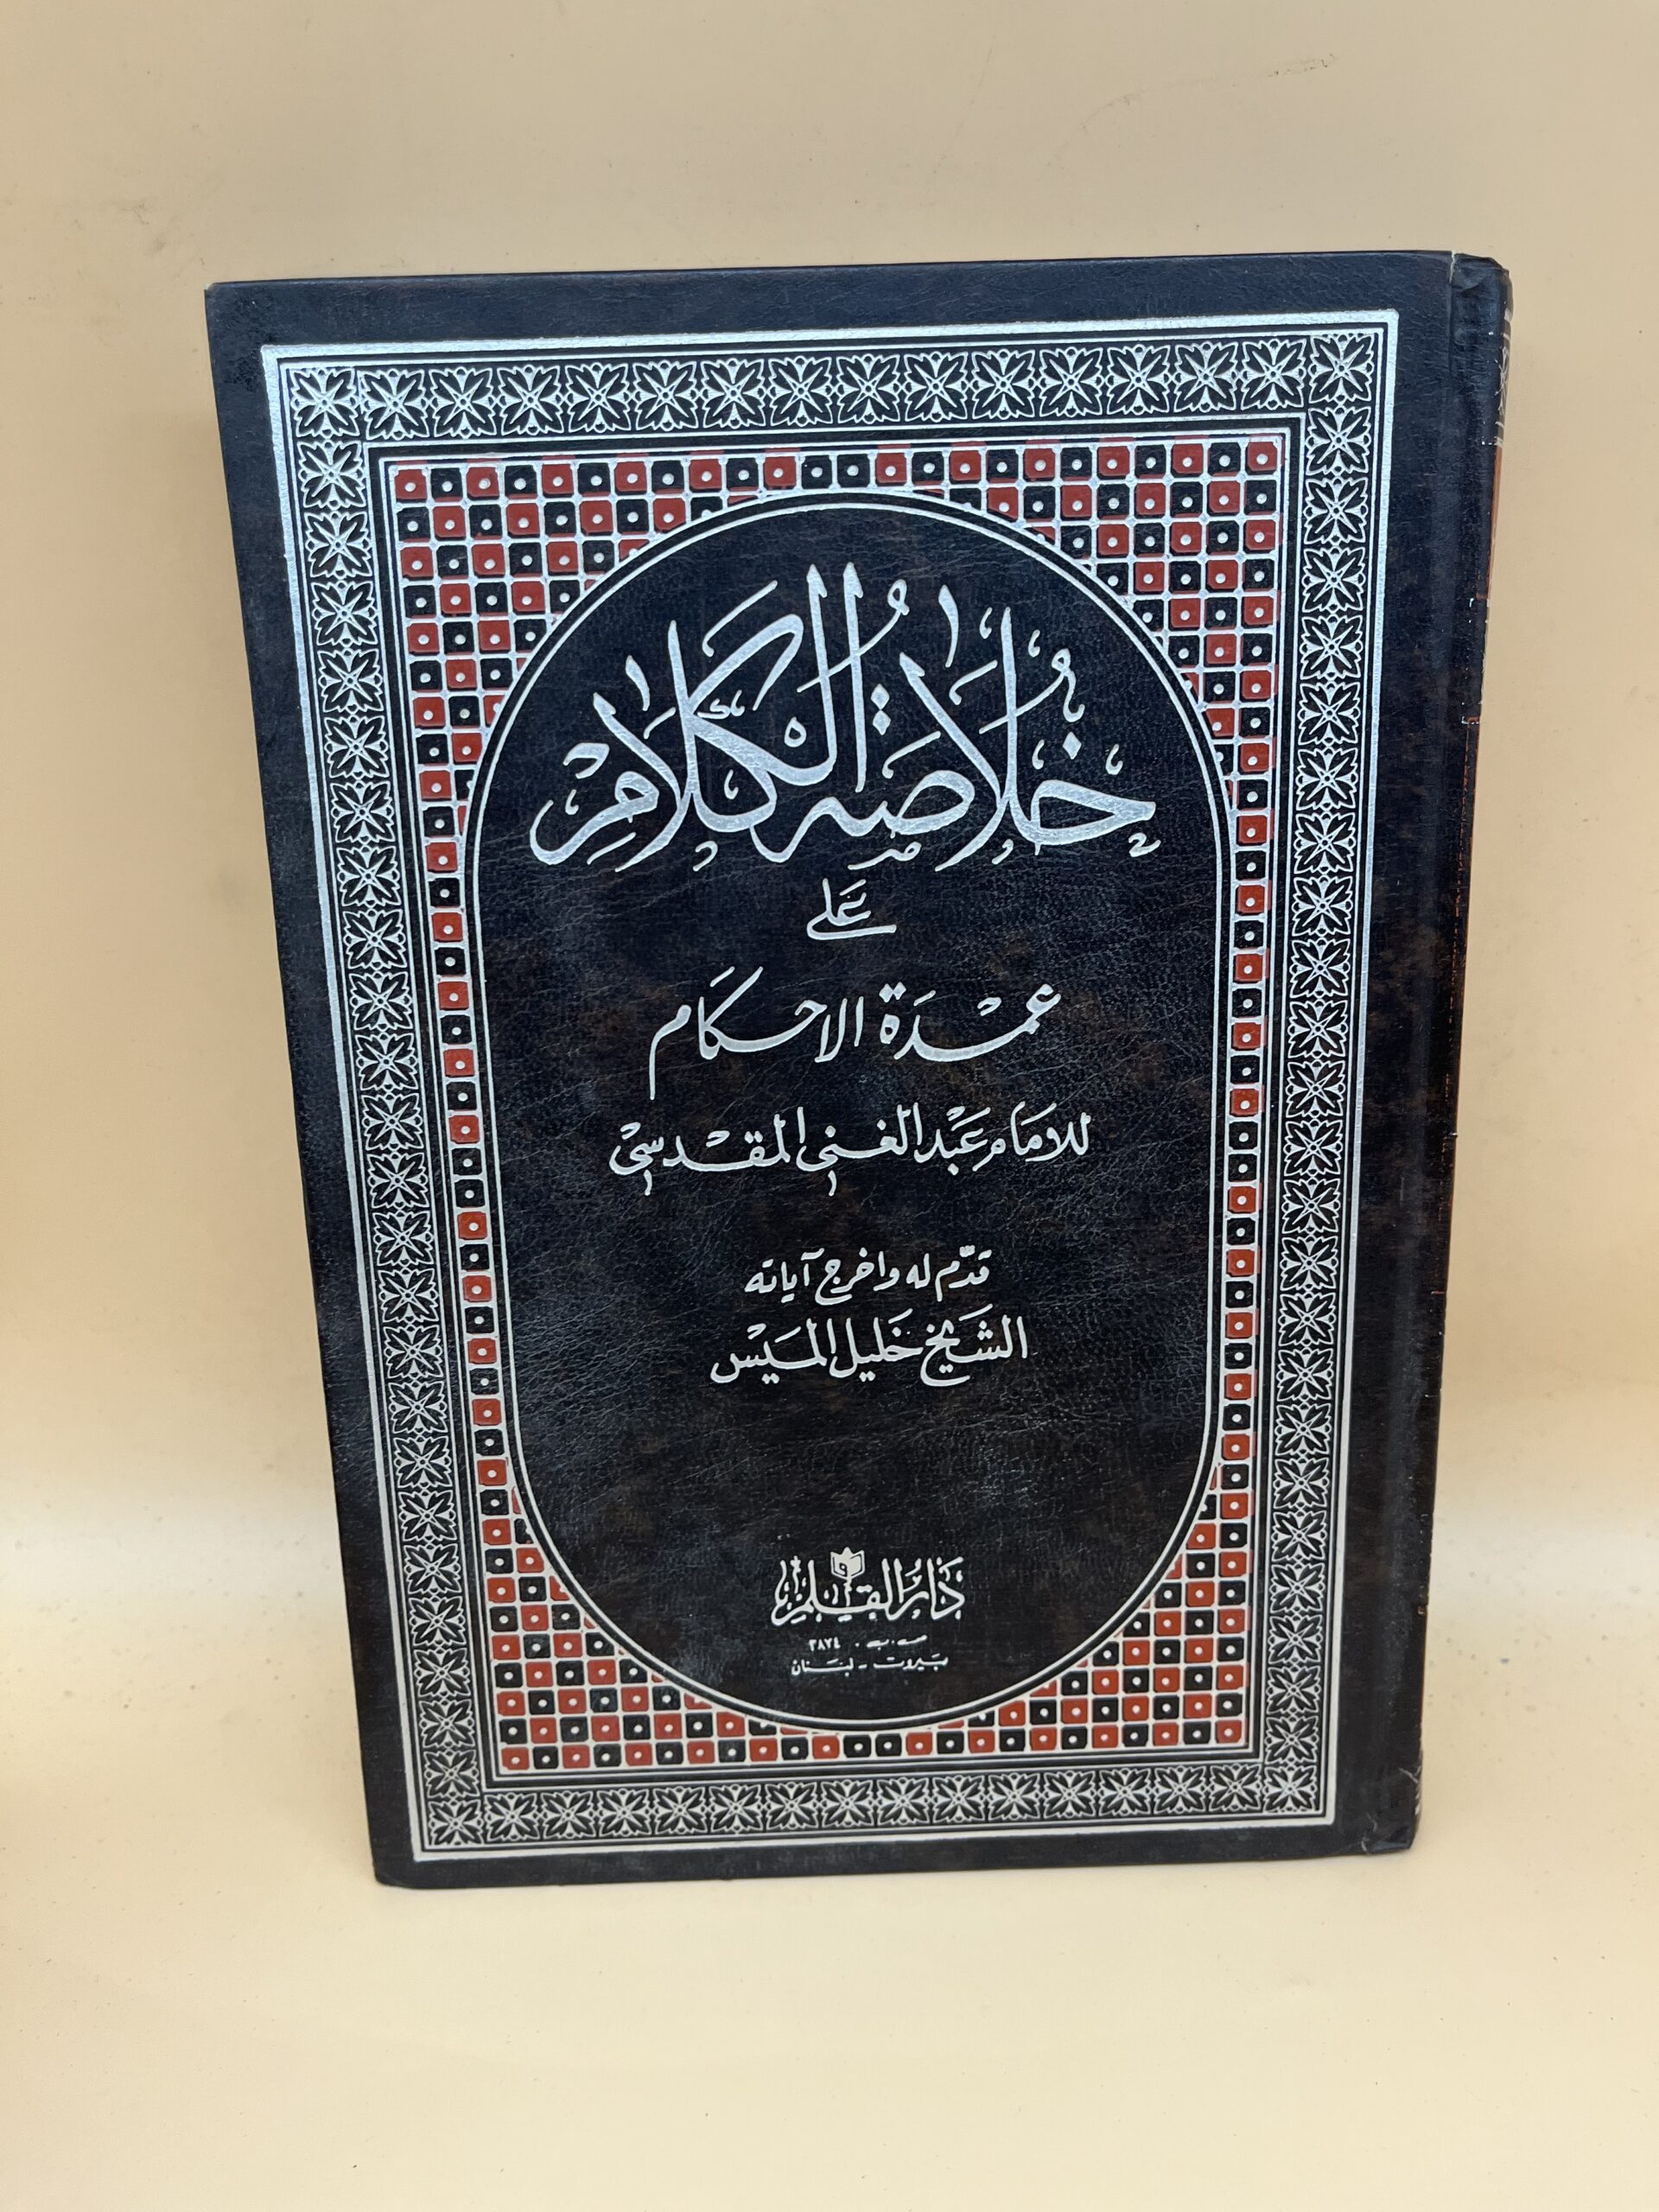 خُلَاصَةُ الكَلَامِ
عَلى
عمْدَة الاحْكَام
للامَام عَبْد الغني المقْدسيْ
قدّم له واخرج آياته
الشَيخ خَليل الميَسْ
دَارُ القَلَم
ص.ب. ٣٨٧٤
بَيروت - لبنَان